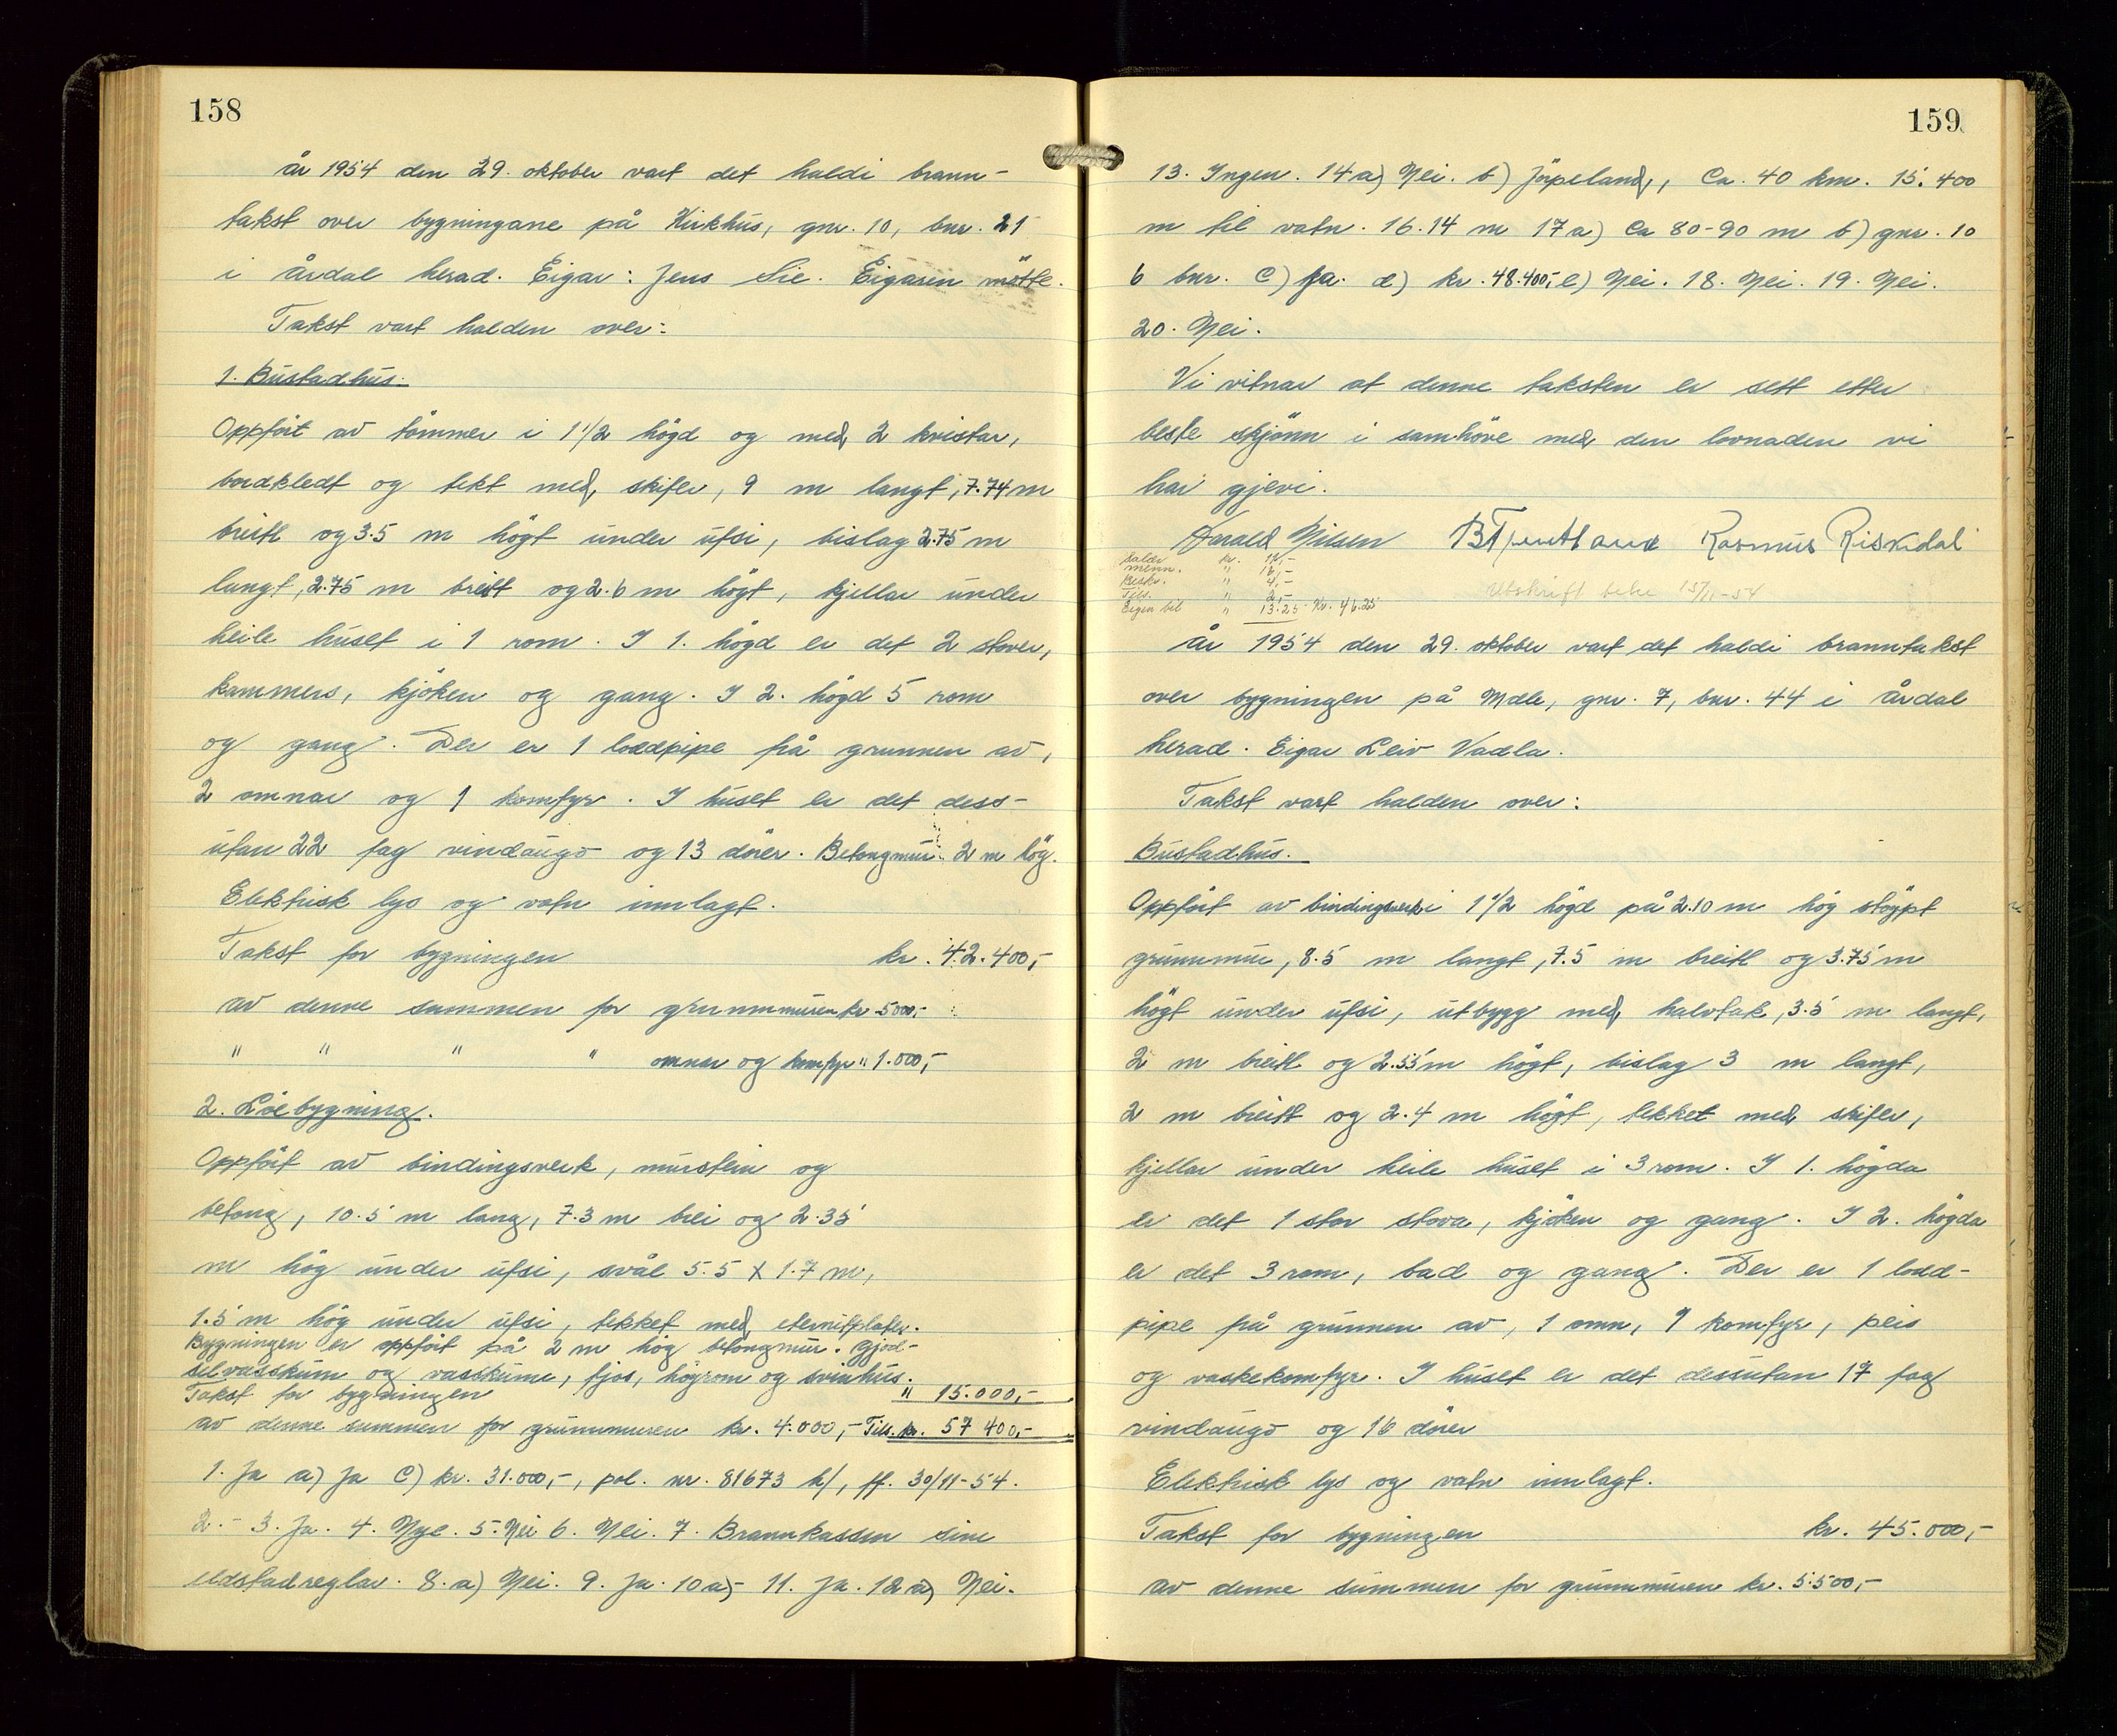 158
år 1954 den 29. oktober vart det haldi brann-
takst over bygningane på Kirkhus, gnr. 10, bnr. 21
i årdal herad. Eigar: Jens Lie. Eigaren møtte.
Takst vart halden over:
1. Bustadhus.
Oppfört av tömmer i 1 1/2 högd og med 2 kvistar,
bordkledt og tekt med skifer, 9 m langt, 7.74 m
breitt og 3.5 m högt under ufsi, bislag 2.75 m
langt, 2.75 m breitt og 2.6 m högt, kjellar under
heile huset i 1 rom. I 1. högd er det 2 stover,
kammers, kjöken og gang. I 2. högd 5 rom
og gang. Der er 1 loddpipe frå grunnen av,
2 omnar og 1 komfyr. I huset er det dess-
utan 22 fag vindaugo og 13 dörer. Betongmur 2 m hög.
Elektrisk lys og vatn innlagt.
Takst for bygningen kr. 42.400,-
av denne summen for grunnmuren kr 5000,-
" " " " omnar og komfyr " 1.000,-
2. Löebygning.
Oppfört av bindingsverk, murstein og
betong, 10.5 m lang, 7.3 m brei og 2.35
m hög under ufsi, svål 5.5 x 1.7 m,
1.5 m hög under ufsi, tekket med eternitplater.
Bygningen er oppfört på 2 m hög betongmur. Gjöd-
selvasskum og vasskume, fjos, höyrom og svinhus.
Takst for bygningen " 15.000,-
av denne summen for grunnmuren kr. 4.000,- Tils. kr. 57 400,-
1. Ja a) Ja c) kr. 31.000,-, pol. nr. 81673 h/, ff. 30/11-54.
2.- 3. Ja. 4. Nye. 5. Nei 6. Nei. 7. Brannkassen sine
eldstadreglar. 8. a) Nei. 9. Ja. 10 a)- 11. Ja. 12 a) Nei.
159
13. Ingen. 14 a) Nei. b) Jöpeland, Ca. 40 km. 15. 400
m til vatn. 16. 14 m 17 a) Ca 80-90 m b) gnr. 10
6 bnr. c) Ja. d) kr. 48.400,- e) Nei. 18. Nei. 19. Nei.
20. Nei.
Vi vitnar at denne taksten er sett etter
beste skjönn i samhöve med den lovnaden vi
har gjevi.
Harald Nilsen Rasmus Riskedal
menn. " 12,-
Beskr. " 4,-
Tils. " 2,-
Eigen bil " 13.25 Kr. 46.25
Utskrift 15/11-54
år 1954 den 29. oktober vart det haldi branntakst
over bygningen på Mæle, gnr. 7, bnr. 44 i årdal
herad. Eigar Leiv Vadla.
Takst vart halden over:
Bustadhus.
Oppfört av bindingsverk i 1 1/2 högd på 2.10 m hög stöypt
grunnmur, 8.5 m langt, 7.5 m breitt og 3.75 m
högt under ufsi, utbygg med halvtak, 3.5 m langt,
2 m breitt og 2.55 m högt, bislag 3 m langt,
2 m breitt og 2.4 m högt, tekket med skifer,
kjellar under heile huset i 3 rom. I 1. högda
er det 1 stor stova, kjöken og gang. I 2. högda
er det 3 rom, bad og gang. Der er 1 lodd-
pipe frå grunnen av, 1 omn, 1 komfyr, peis
og vaskekomfyr. I huset er det dessutan 17 fag
vindaugo og 16 dörer
Elektrisk lys og vatn innlagt.
Takst for bygningen kr. 45.000,-
av denne summen for grunnmuren kr. 5.500,-